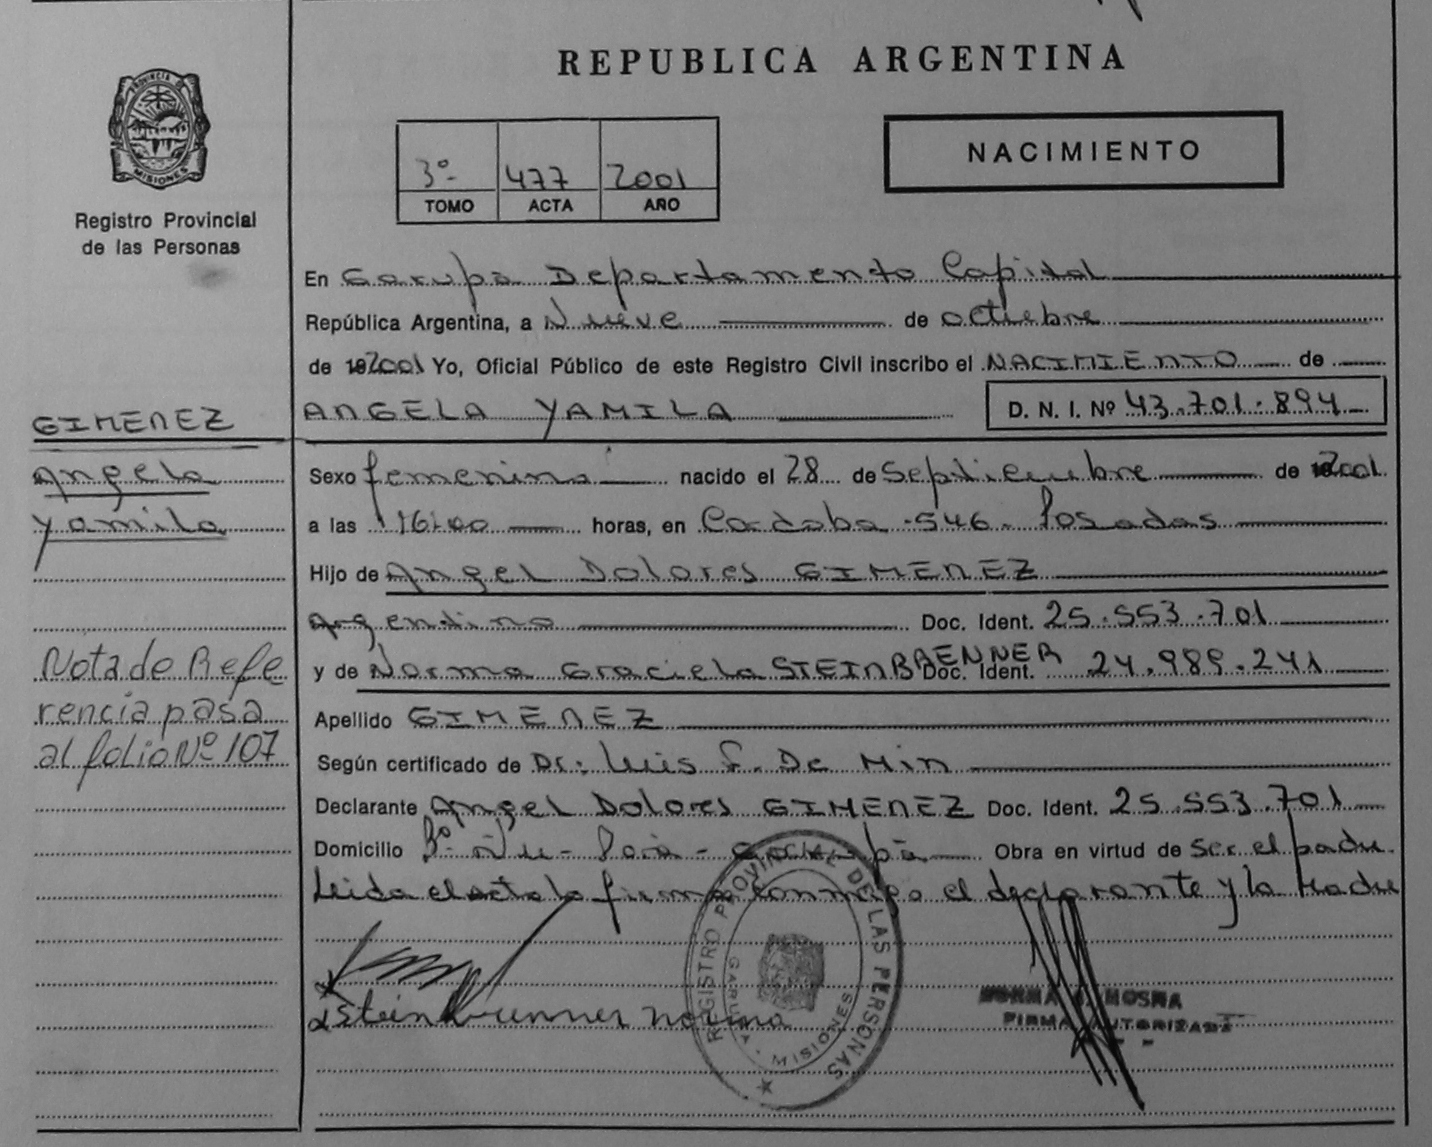 REPUBLICA ARGENTINA
PROVINCIA DE
MISIONES
Registro Provincial
de las Personas
3º 477 2001
TOMO ACTA AÑO
NACIMIENTO
En Garupa Departamento Capital
República Argentina, a Nueve de octubre
de 2001 Yo, Oficial Público de este Registro Civil inscribo el NACIMIENTO de
ANGELA YAMILA D. N. I. Nº 43.701.894
GIMENEZ
Angela
Yamila
Sexo femenino nacido el 28 de Septiembre de 2001
a las 16:00 horas, en Cordoba 546. Posadas
Hijo de Angel Dolores GIMENEZ
Argentino Doc. Ident. 25.553.701
y de Norma Graciela STEINBRENNER Doc. Ident. 24.989.241
Apellido GIMENEZ
Según certificado de Dr: Luis F. De Min
Declarante Angel Dolores GIMENEZ Doc. Ident. 25.553.701
Domicilio Bº Ñu-Porá-Garupá Obra en virtud de Ser el padre.
Leida el acta la firma conmigo el declarante y la Madre
Nota de Refe
rencia pasa
al folio Nº 107
Steinbrunner norma
REGISTRO PROVINCIAL DE LAS PERSONAS
GARUPA - MISIONES
NORMA MOSNA
FIRMA AUTORIZADA